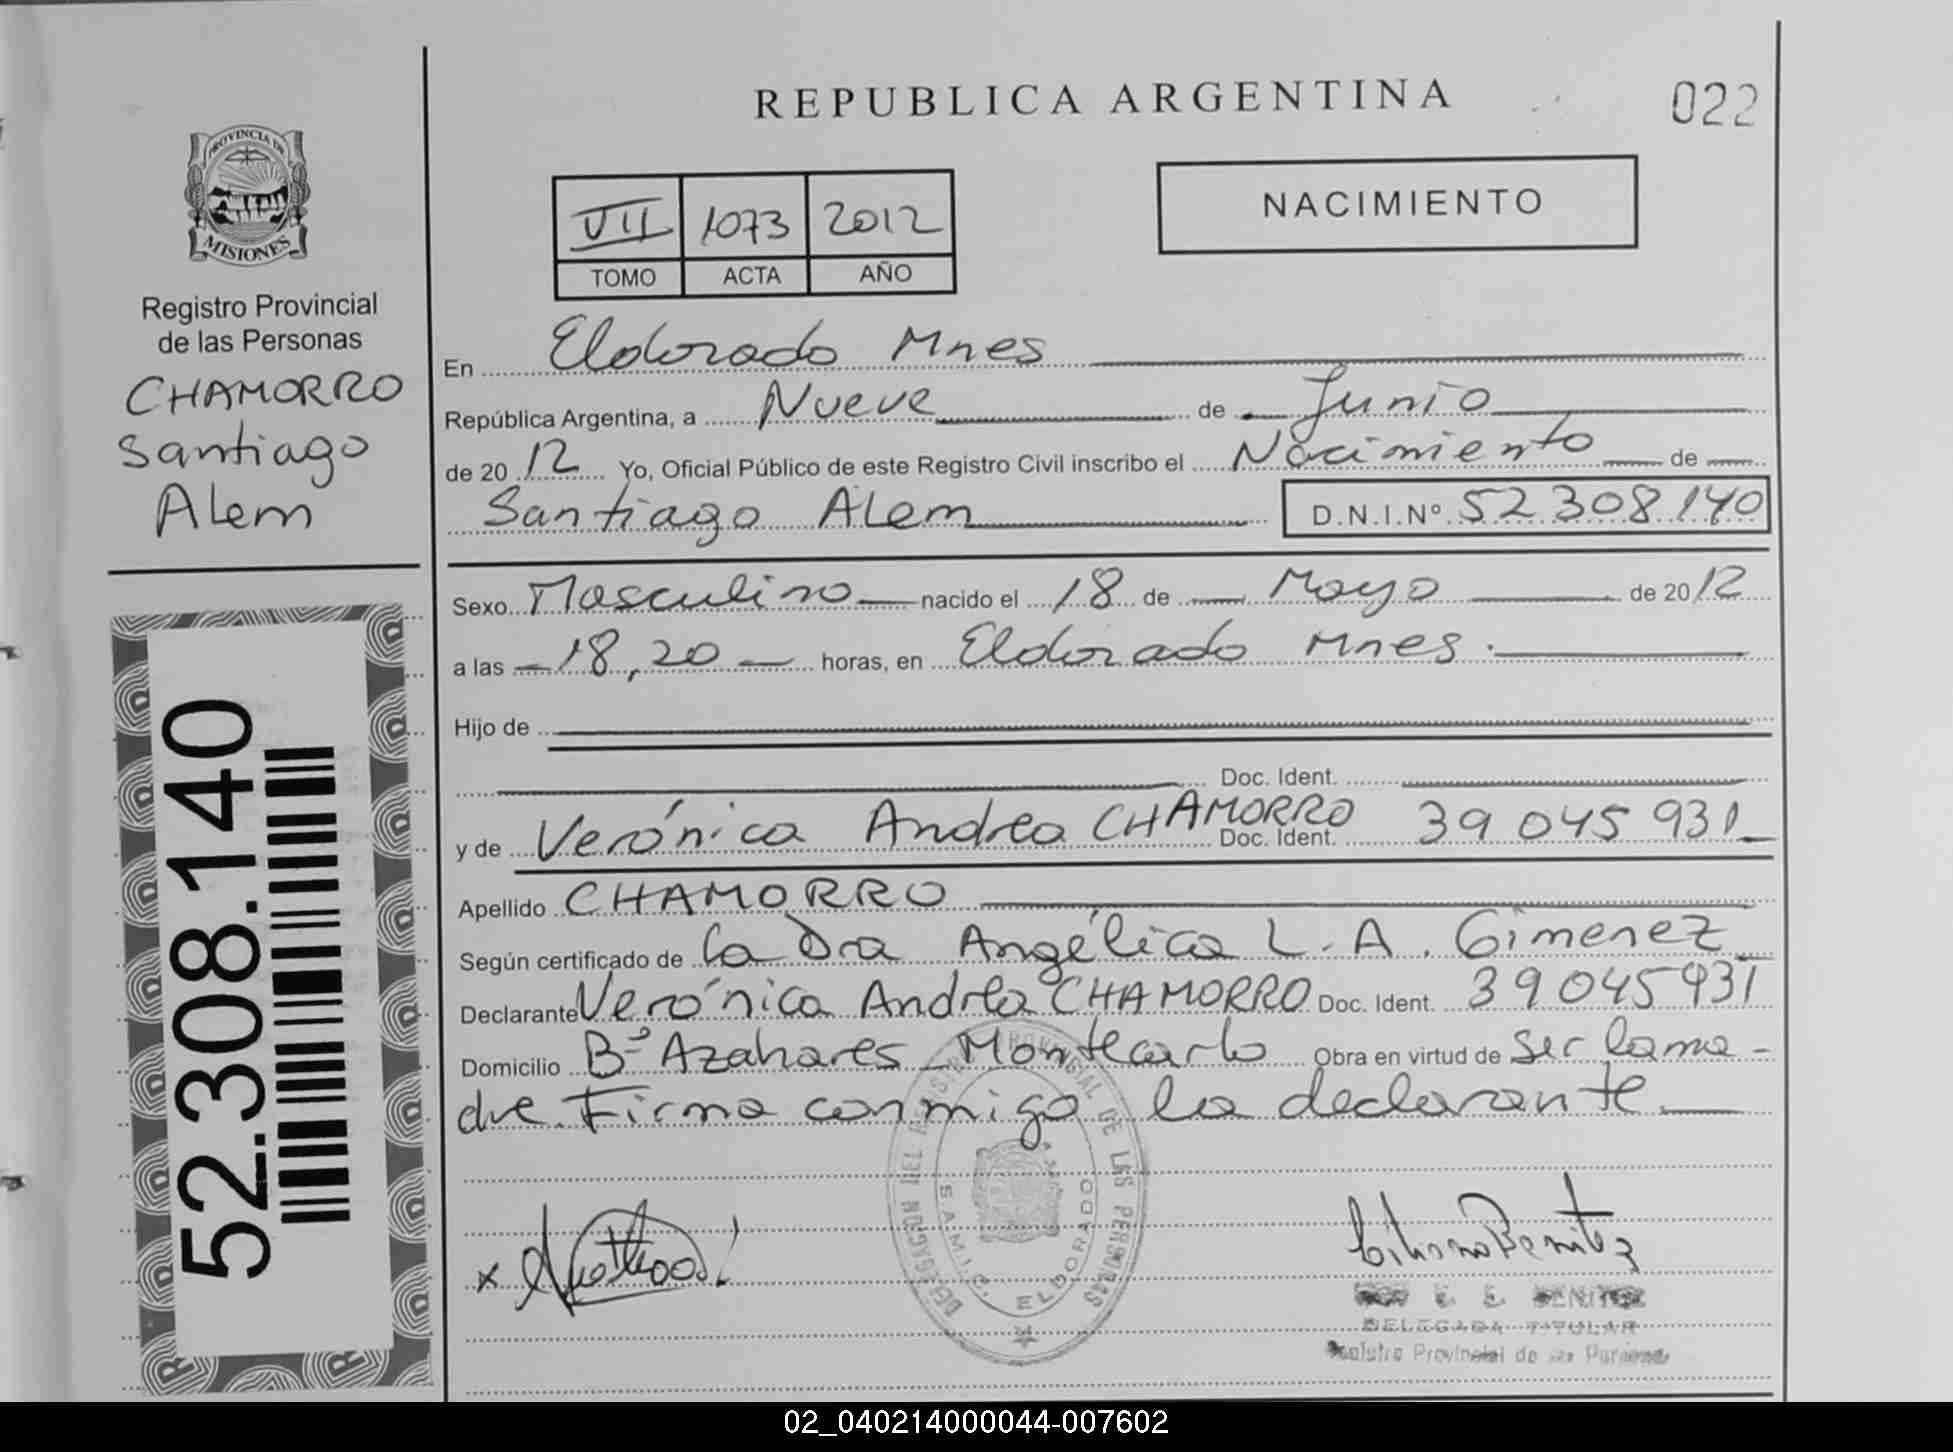 REPUBLICA ARGENTINA
022
PROVINCIA DE
MISIONES
Registro Provincial
de las Personas
CHAMORRO
Santiago
Alem
52.308.140
VII 1073 2012
TOMO ACTA AÑO
NACIMIENTO
En Eldorado Mnes
República Argentina, a Nueve de Junio
de 2012 Yo, Oficial Público de este Registro Civil inscribo el Nacimiento de
Santiago Alem D.N.I.Nº 52 308.140
Sexo Masculino nacido el 18 de Mayo de 2012
a las 18,20 horas, en Eldorado Mnes.
Hijo de
Doc. Ident.
y de Verónica Andrea CHAMORRO Doc. Ident. 39 045 931
Apellido CHAMORRO
Según certificado de la Dra Angélica L. A. Gimenez
Declarante Verónica Andrea CHAMORRO Doc. Ident. 39 045 931
Domicilio Bº Azahares Montecarlo Obra en virtud de ser la ma-
dre. Firma conmigo la declarante.
DELEGACION DEL REGISTRO PROVINCIAL DE LAS PERSONAS
SAMIC. ELDORADO
x
Benitez
E. E. BENITEZ
DELEGADA TITULAR
Registro Provincial de las Personas
02_040214000044-007602